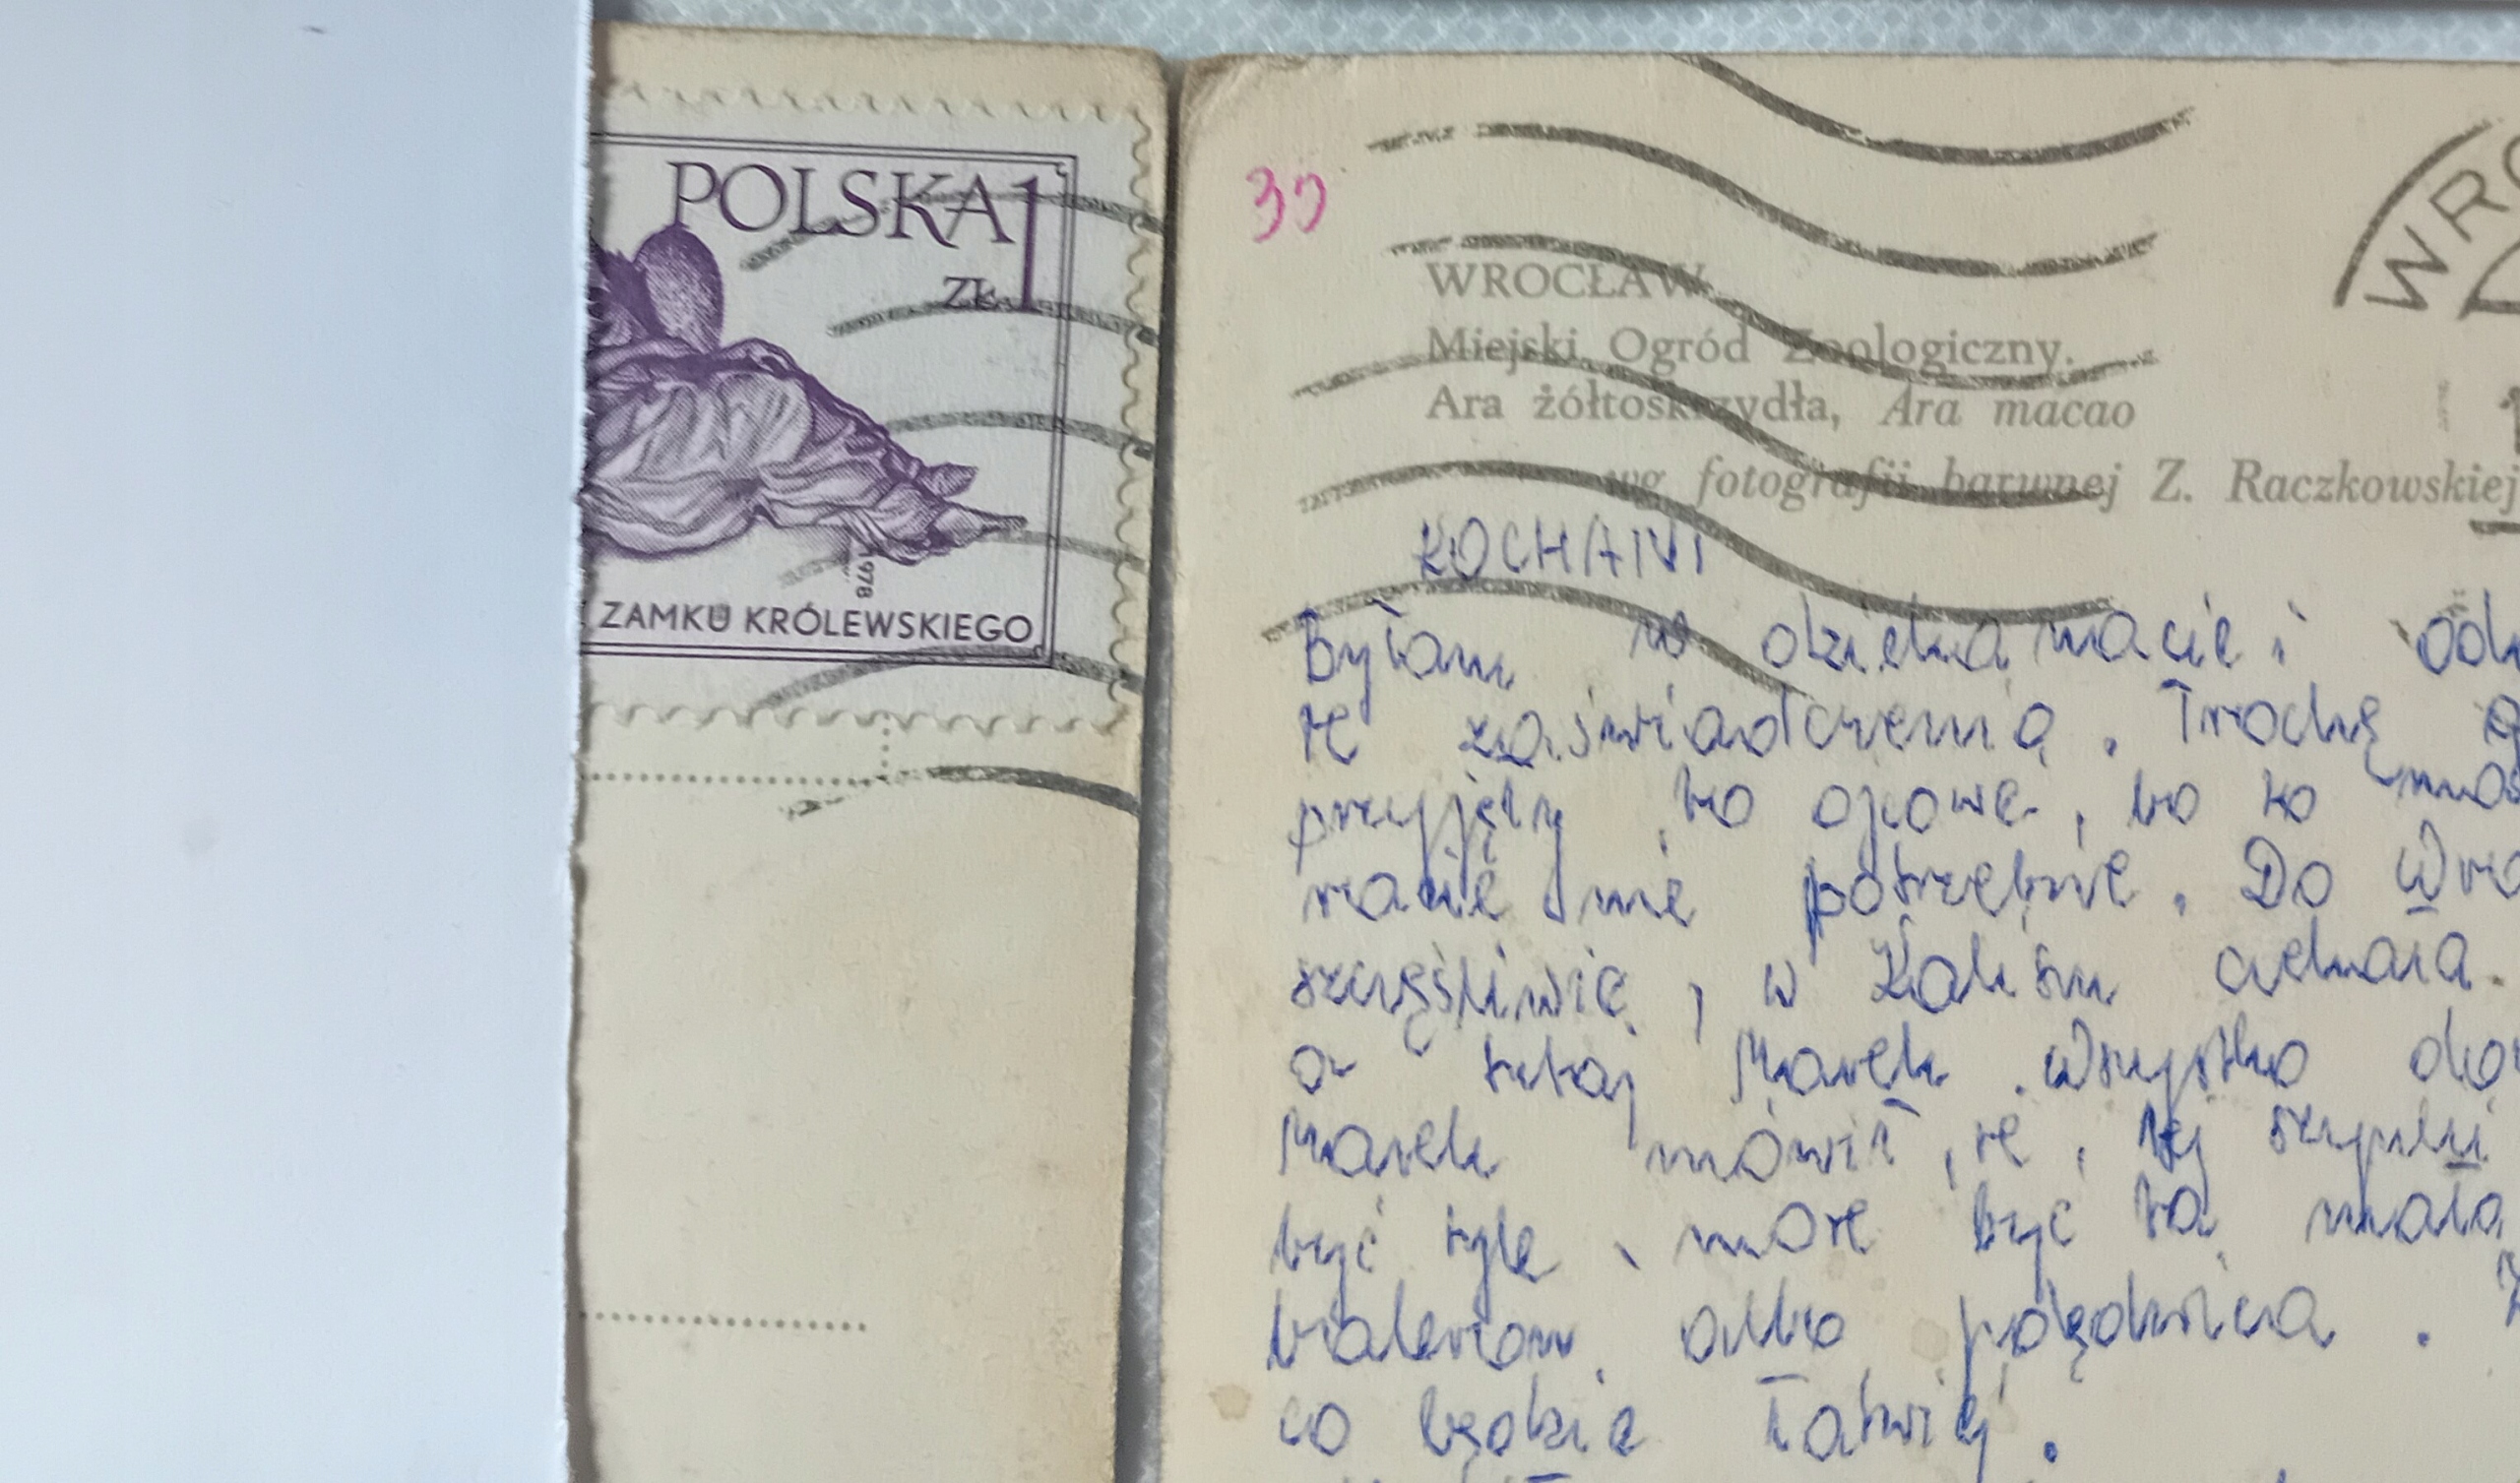 POLSKA 1
ZŁ
1978
ZAMKU KRÓLEWSKIEGO
WRO
35
WROCŁAW
Miejski Ogród Zoologiczny.
Ara żółtoskrzydła, Ara macao
wg fotografii barwnej Z. Raczkowskiej
KOCHANI
Byłam w dziekanacie i
że zaświadczenia. Trochę
przyjęły to ojcowe, bo to
macie nie potrzebne. Do Wro
szczęśliwie, w Kaliszu czekała
a tutaj Marek. Wszystko
Marek mówił, że tej szynki
być tyle, może być ta mała
baleron albo polędwica.
co będzie łatwiej.